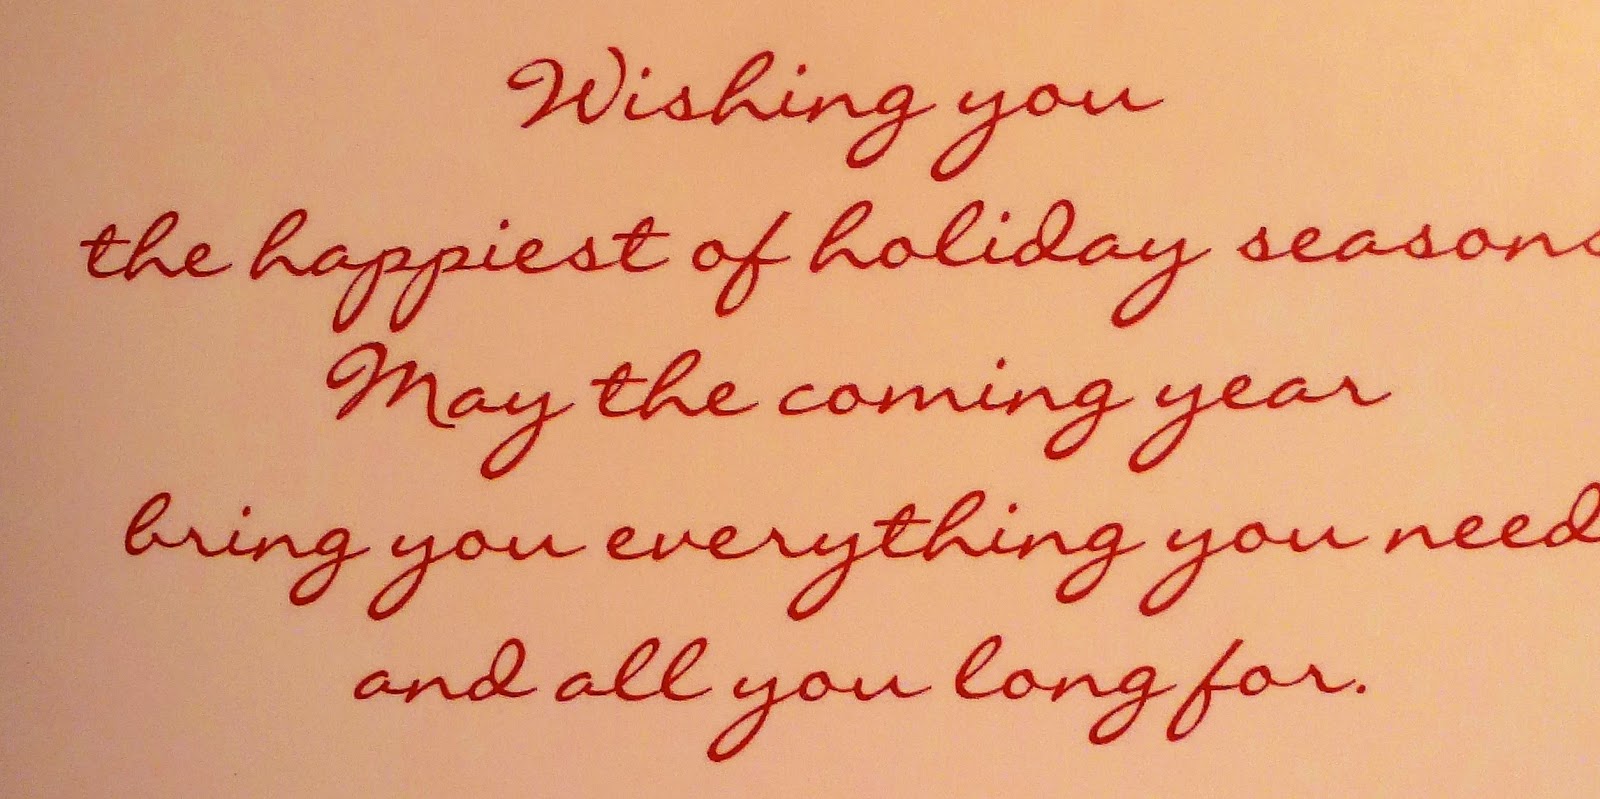 Wishing you
the happiest of holiday seasons
May the coming year
bring you everything you need
and all you long for.